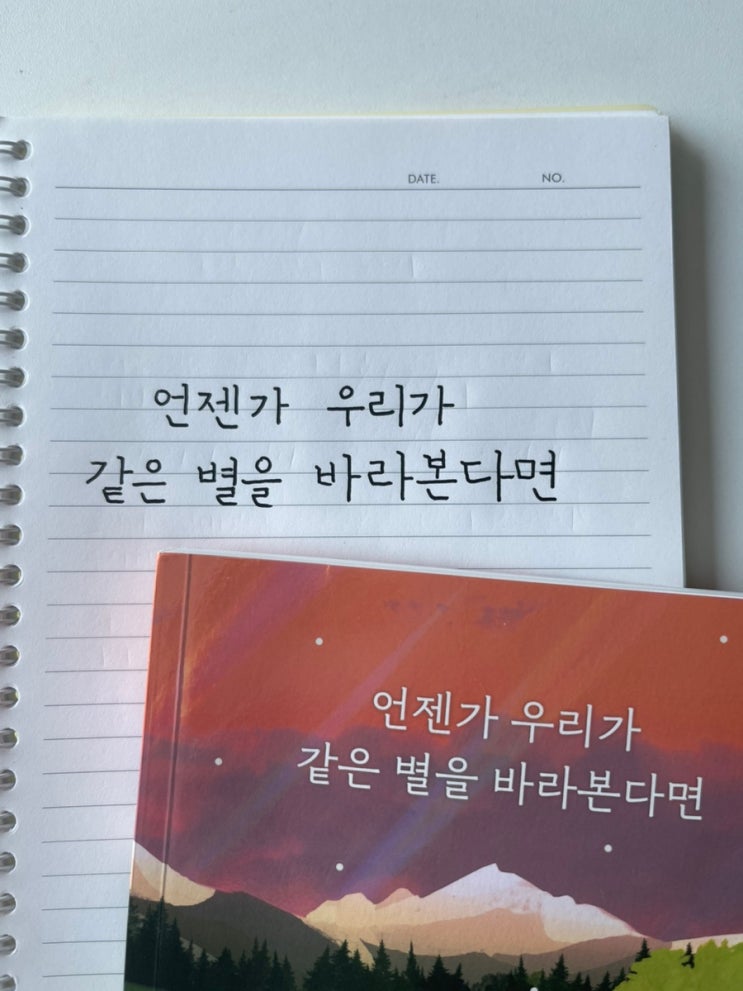 DATE. NO.
언젠가 우리가
같은 별을 바라본다면
언젠가 우리가
같은 별을 바라본다면